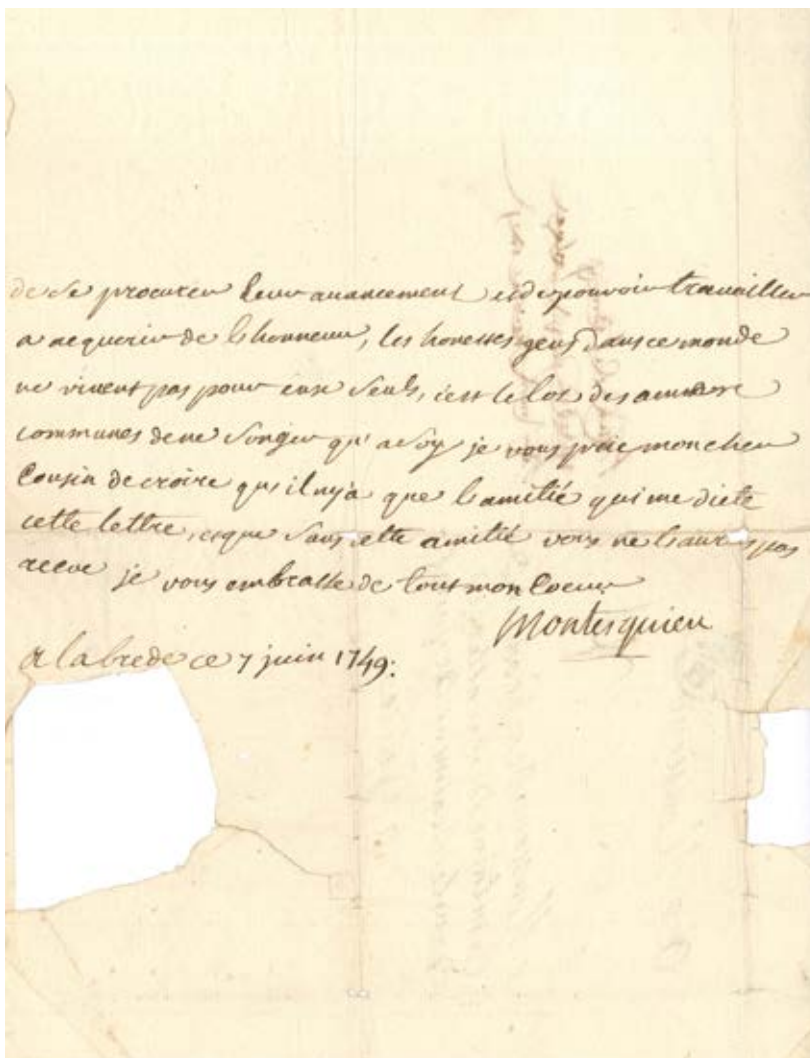 de se procurer leur auancement et de pouvoir travailler
a acquerir de lhonneur, les honestes gens dans ce monde
ne vivent pas pour eux seuls, c'est le lot des
communes de ne songer qu'a soy je vous prie mon cher
Cousin de croire qu'il ny a que lamitié qui me dicte
cette lettre, et que sans cette amitié vous ne lauriés pas
receue je vous embrasse de tout mon Coeur
Montesquieu
a labrede ce 7 juin 1749: